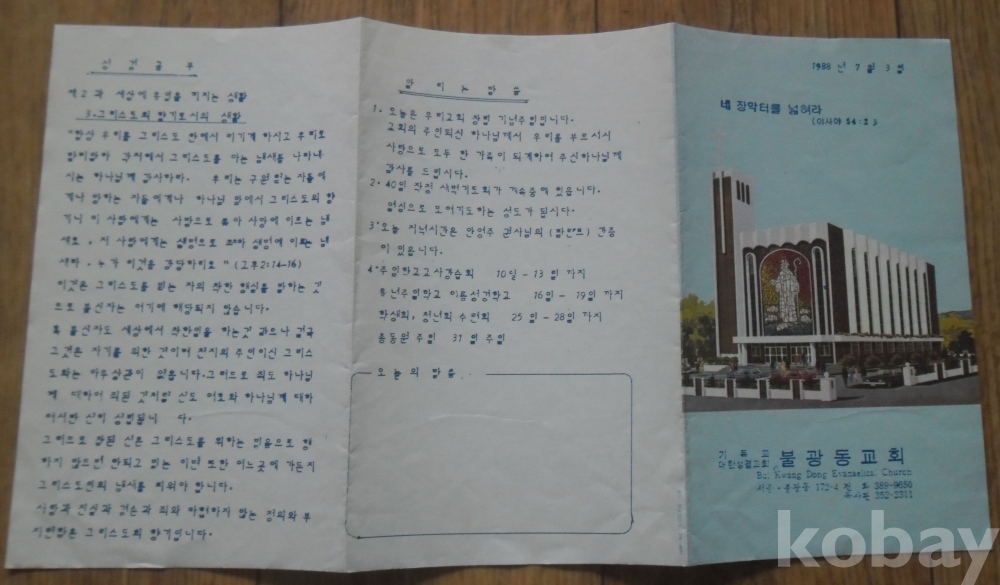 성경공부
제2과 세상에 유익을 끼치는 생활
3. 그리스도의 향기로서의 생활
"항상 우리를 그리스도 안에서 이기게 하시고 우리로
말미암아 각처에서 그리스도를 아는 냄새를 나타내
시는 하나님께 감사하라. 우리는 구원 얻는 자들에
게나 망하는 자들에게나 하나님 앞에서 그리스도의 향
기니 이 사람에게는 사망으로 좇아 사망에 이르는 냄
새로, 저 사람에게는 생명으로 좇아 생명에 이르는 냄
새라. 누가 이것을 감당하리요" (고후2:14-16)
이것은 그리스도를 믿는 자의 착한 행실을 말하는 것
으로 불신자는 여기에 해당되지 않습니다.
혹 불신자도 세상에서 착한일을 하는것 같으나 결국
그것은 자기를 위한 것이며 진리의 주인이신 그리스
도와는 아무상관이 없읍니다. 그러므로 죄도 하나님
께 대하여 하나님께 대하
여서만 선이 성립됩니다.
그러므로 참된 선은 그리스도를 위하는 믿음으로 행
하지 않으면 안되고 믿는 이면 또한 어느곳에 가든지
그리스도인의 냄새를 피워야 합니다.
사랑과 진실과 겸손과 죄와 타협하지 않는 정의와 부
지런함은 그리스도의 향기입니다.
알리는말씀
1. 오늘은 우리교회 창립 기념주일입니다.
교회의 주인되신 하나님께서 우리를 부르시사
사랑으로 모두 한 가족이 되게하여 주신하나님께
감사를 드립시다.
2. 40일 작정 새벽기도회가 계속중에 있읍니다.
열심으로 모여기도하는 성도가 됩시다.
3. 오늘 저녁시간은 안영주 권사님의 간증
이 있읍니다.
4. 주일학교교사강습회 10일 - 13일 까지
통년주일학교 여름성경학교 16일 - 19일 까지
학생회, 청년회 수련회 25일 - 28일 까지
총동원 주일 31일 주일
오늘의 말씀
1988년 7월 3일
네 장막터를 넓혀라
(이사야 54:2)
기독교
대한성결교회 불광동교회
Bul Kwang Dong Evangelical Church
서울·불광동 172-4 전화 389-9650
목사관 352-2311
kobay